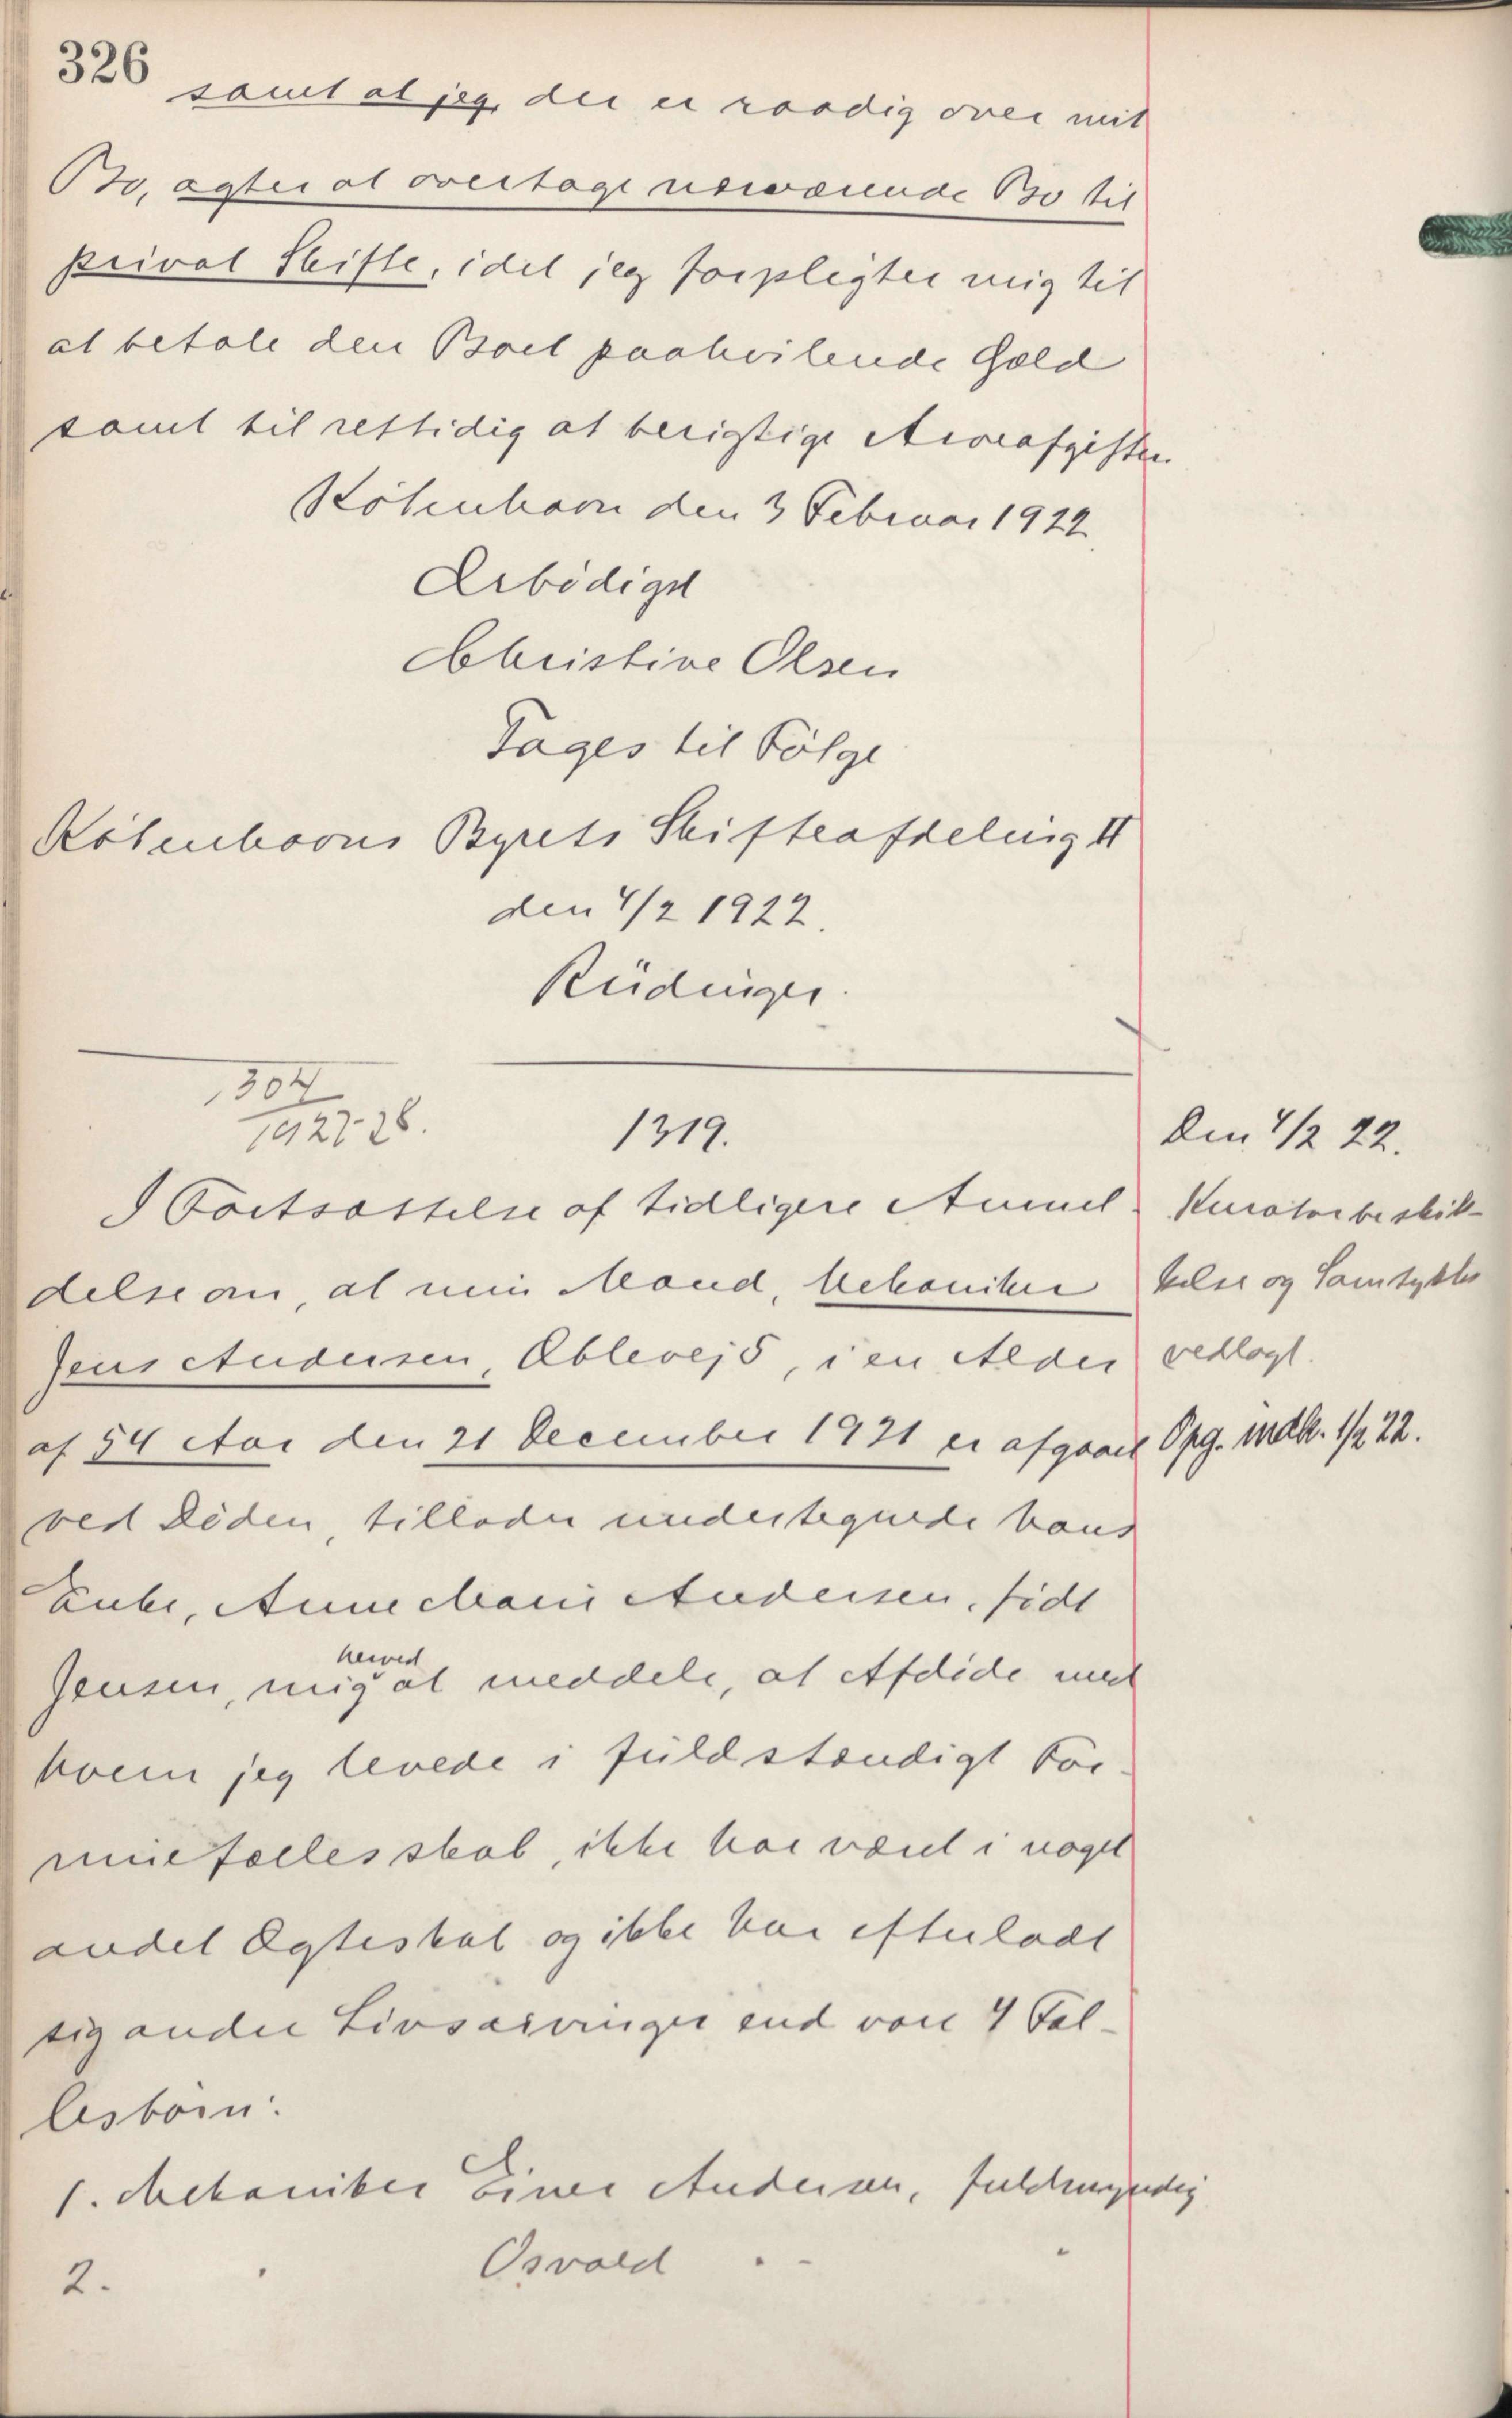 326
samt at jeg, der er raadig over mit
Bo, agter at overtage nærværende Bo til
privat Skifte, idet jeg forpligter mig til
at betale den Boet paahvilende Gæld
samt til rettidig at berigtige Arveafgiften
København den 3 Februar 1922.
Ærbødigst
Christine Olsen
Tages til Følge
Københavns Byrets Skifteafdeling II
den 4/2 1922.
Rüdinger.
1304
1927-28.
1319.
I Fortsættelse af tidligere Anmel-
delse om, at min Mand, Mekaniker
Jens Andersen, Æblevej 5, i en Alder
af 54 Aar den 21 December 1921 er afgaaet
ved Døden, tillader undertegnede hans
Enke, Anne Marie Andersen, født
Jensen, mig herved at meddele, at Afdøde med
hvem jeg levede i fuldstændigt For-
muefællesskab, ikke har været i noget
andet Ægteskab og ikke har efterladt
sig andre Livsarvinger end vore 4 Fæl-
lesbørn:
1. Mekaniker Einer Andersen, fuldmyndig
2. " Osvald " "
Den 4/2 22.
Kuratorbeskik-
kelse og Samtykke
vedlagt.
Opg. indk. 1/2 22.